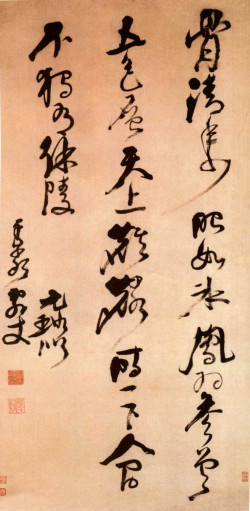 骨清年少眼如冰鳳羽參差
五色層天上麒麟時一下人間
不獨有徐陵
元璐似
詞丈